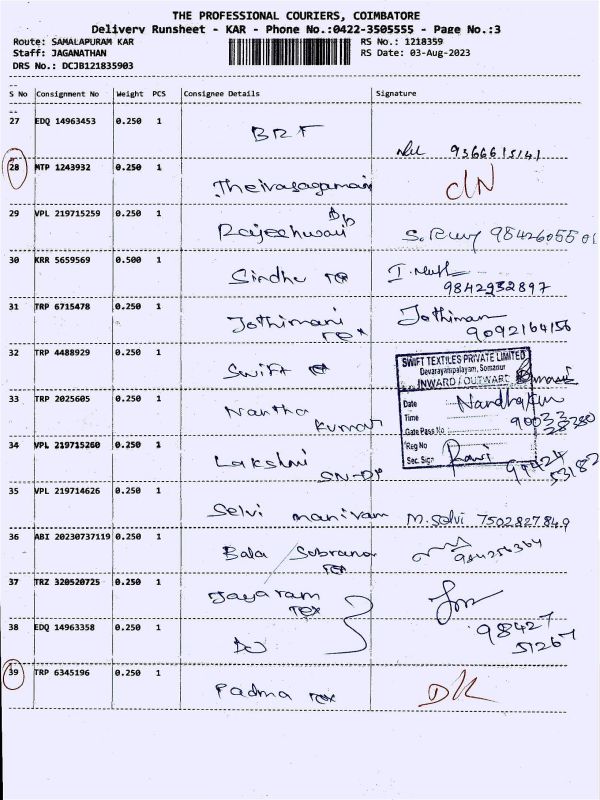 THE PROFESSIONAL COURIERS, COIMBATORE
Delivery Runsheet - KAR - Phone No.:0422-3505555 - Page No.:3
Route: SAMALAPURAM KAR RS No.: 1218359
Staff: JAGANATHAN RS Date: 03-Aug-2023
DRS No.: DCJB121835903
S No Consignment No Weight PCS Consignee Details Signature
27 EDQ 14963453 0.250 1
BRF 9366615141
28 MTP 1243932 0.250 1
Theivasagamani
29 VPL 219715259 0.250 1
Rajeshwari 9842605501
30 KRR 5659569 0.500 1
Sindhu Tex
9842932897
31 TRP 6715478 0.250 1
Jothimani Tex Jothimani
9092164156
32 TRP 4488929 0.250 1
Swift Tex
SWIFT TEXTILES PRIVATE LIMITED
Devarayampalayam, Somanur
INWARD / OUTWARD
Date
Time
Gate Pass No
Reg No
Sec. Sign
33 TRP 2025605 0.250 1
Nantha Kumar Nandhakum
90033
28380
34 VPL 219715260 0.250 1
Lakshmi
99424
53182
35 VPL 219714626 0.250 1
Selvi manivam M. Selvi 7502827849
36 ABI 20230737119 0.250 1
Bala Tex
37 TRZ 320520725 0.250 1
Jayaram Tex
38 EDQ 14963358 0.250 1
Do
98427
51267
39 TRP 6345196 0.250 1
Padma Tex DK